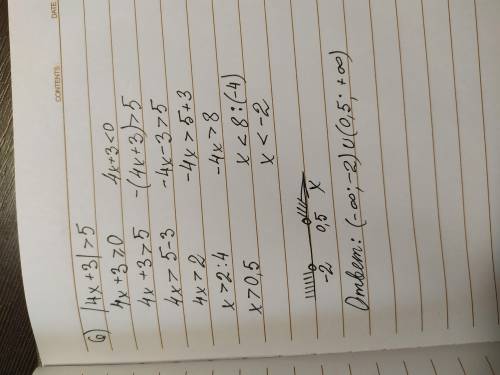 CONTENTS
DATE
б) |4x+3|>5
4x+3≥0 4x+3<0
4x+3≥5 -(4x+3)>5
4x>5-3 -4x-3>5
4x>2 -4x>5+3
x>2:4 -4x>8
x>0,5 x<8:(-4)
x<-2
-2 0,5 x
Ответ: (-∞; -2)∪(0,5; +∞)